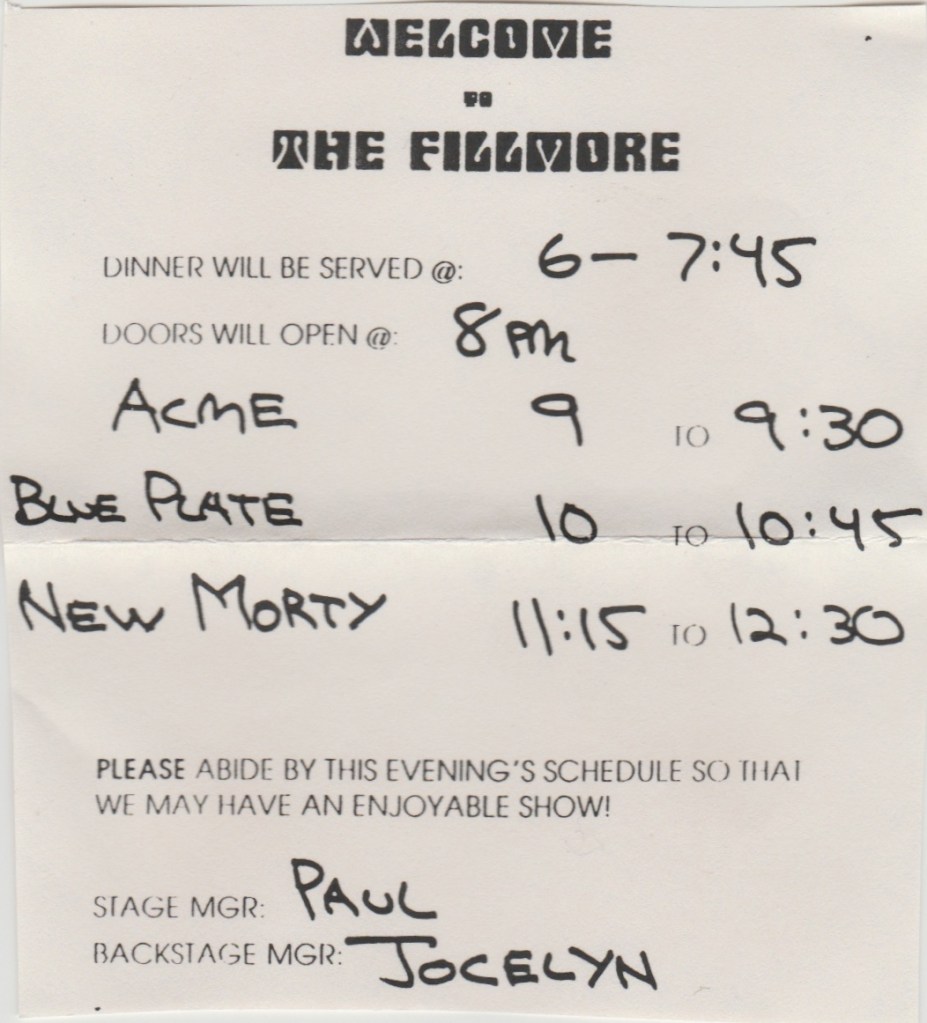 WELCOME
TO
THE FILLMORE
DINNER WILL BE SERVED @: 6 — 7:45
DOORS WILL OPEN @: 8 PM
ACME 9 TO 9:30
BLUE PLATE 10 TO 10:45
NEW MORTY 11:15 TO 12:30
PLEASE ABIDE BY THIS EVENING'S SCHEDULE SO THAT
WE MAY HAVE AN ENJOYABLE SHOW!
STAGE MGR: PAUL
BACKSTAGE MGR: JOCELYN